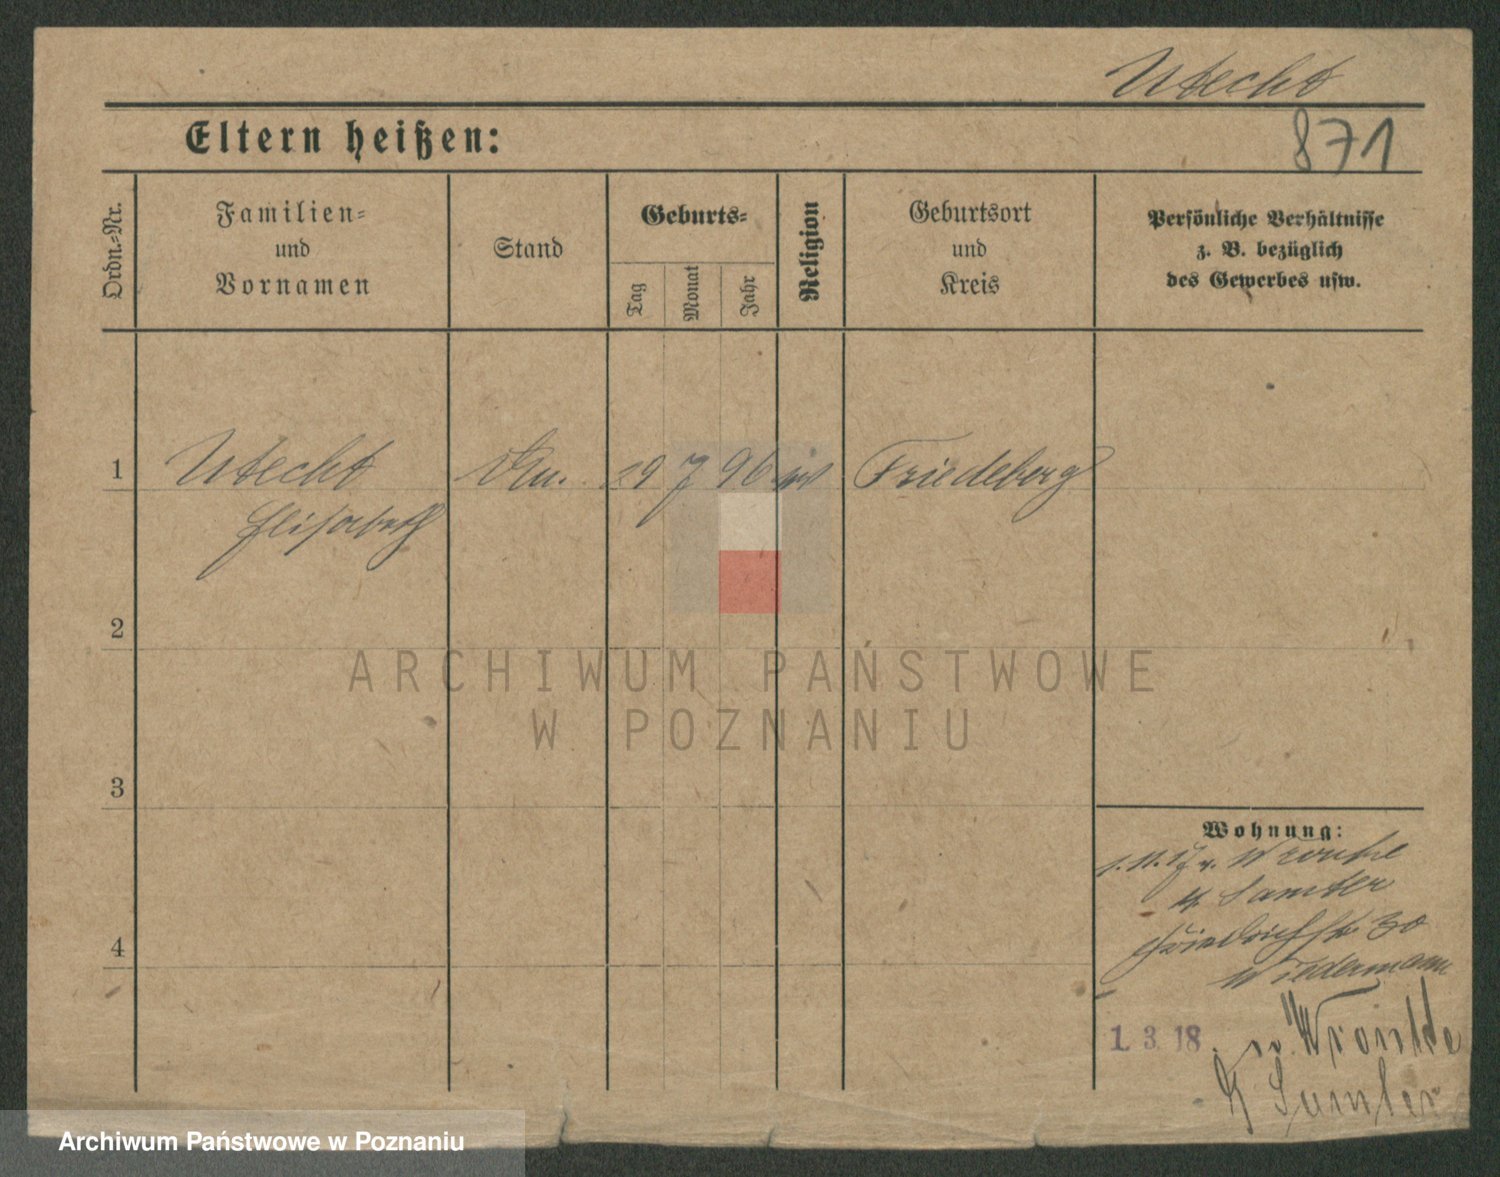 Utecht
Eltern heißen:
871
Ordn.-Nr.
Familien-
und
Vornamen
Stand
Geburts-
Tag
Monat
Jahr
Religion
Geburtsort
und
Kreis
Persönliche Verhältnisse
z. B. bezüglich
des Gewerbes usw.
1
Utecht
29
7
96
Friedeberg
Elisabeth
2
ARCHIWUM PAŃSTWOWE
W POZNANIU
3
Wohnung:
1.11.17 n. Wronke
Kr. Samter
Friedrichstr. 30
4
Wiedermann
1. 3. 18. n. Wronke
Kr Samter
Archiwum Państwowe w Poznaniu